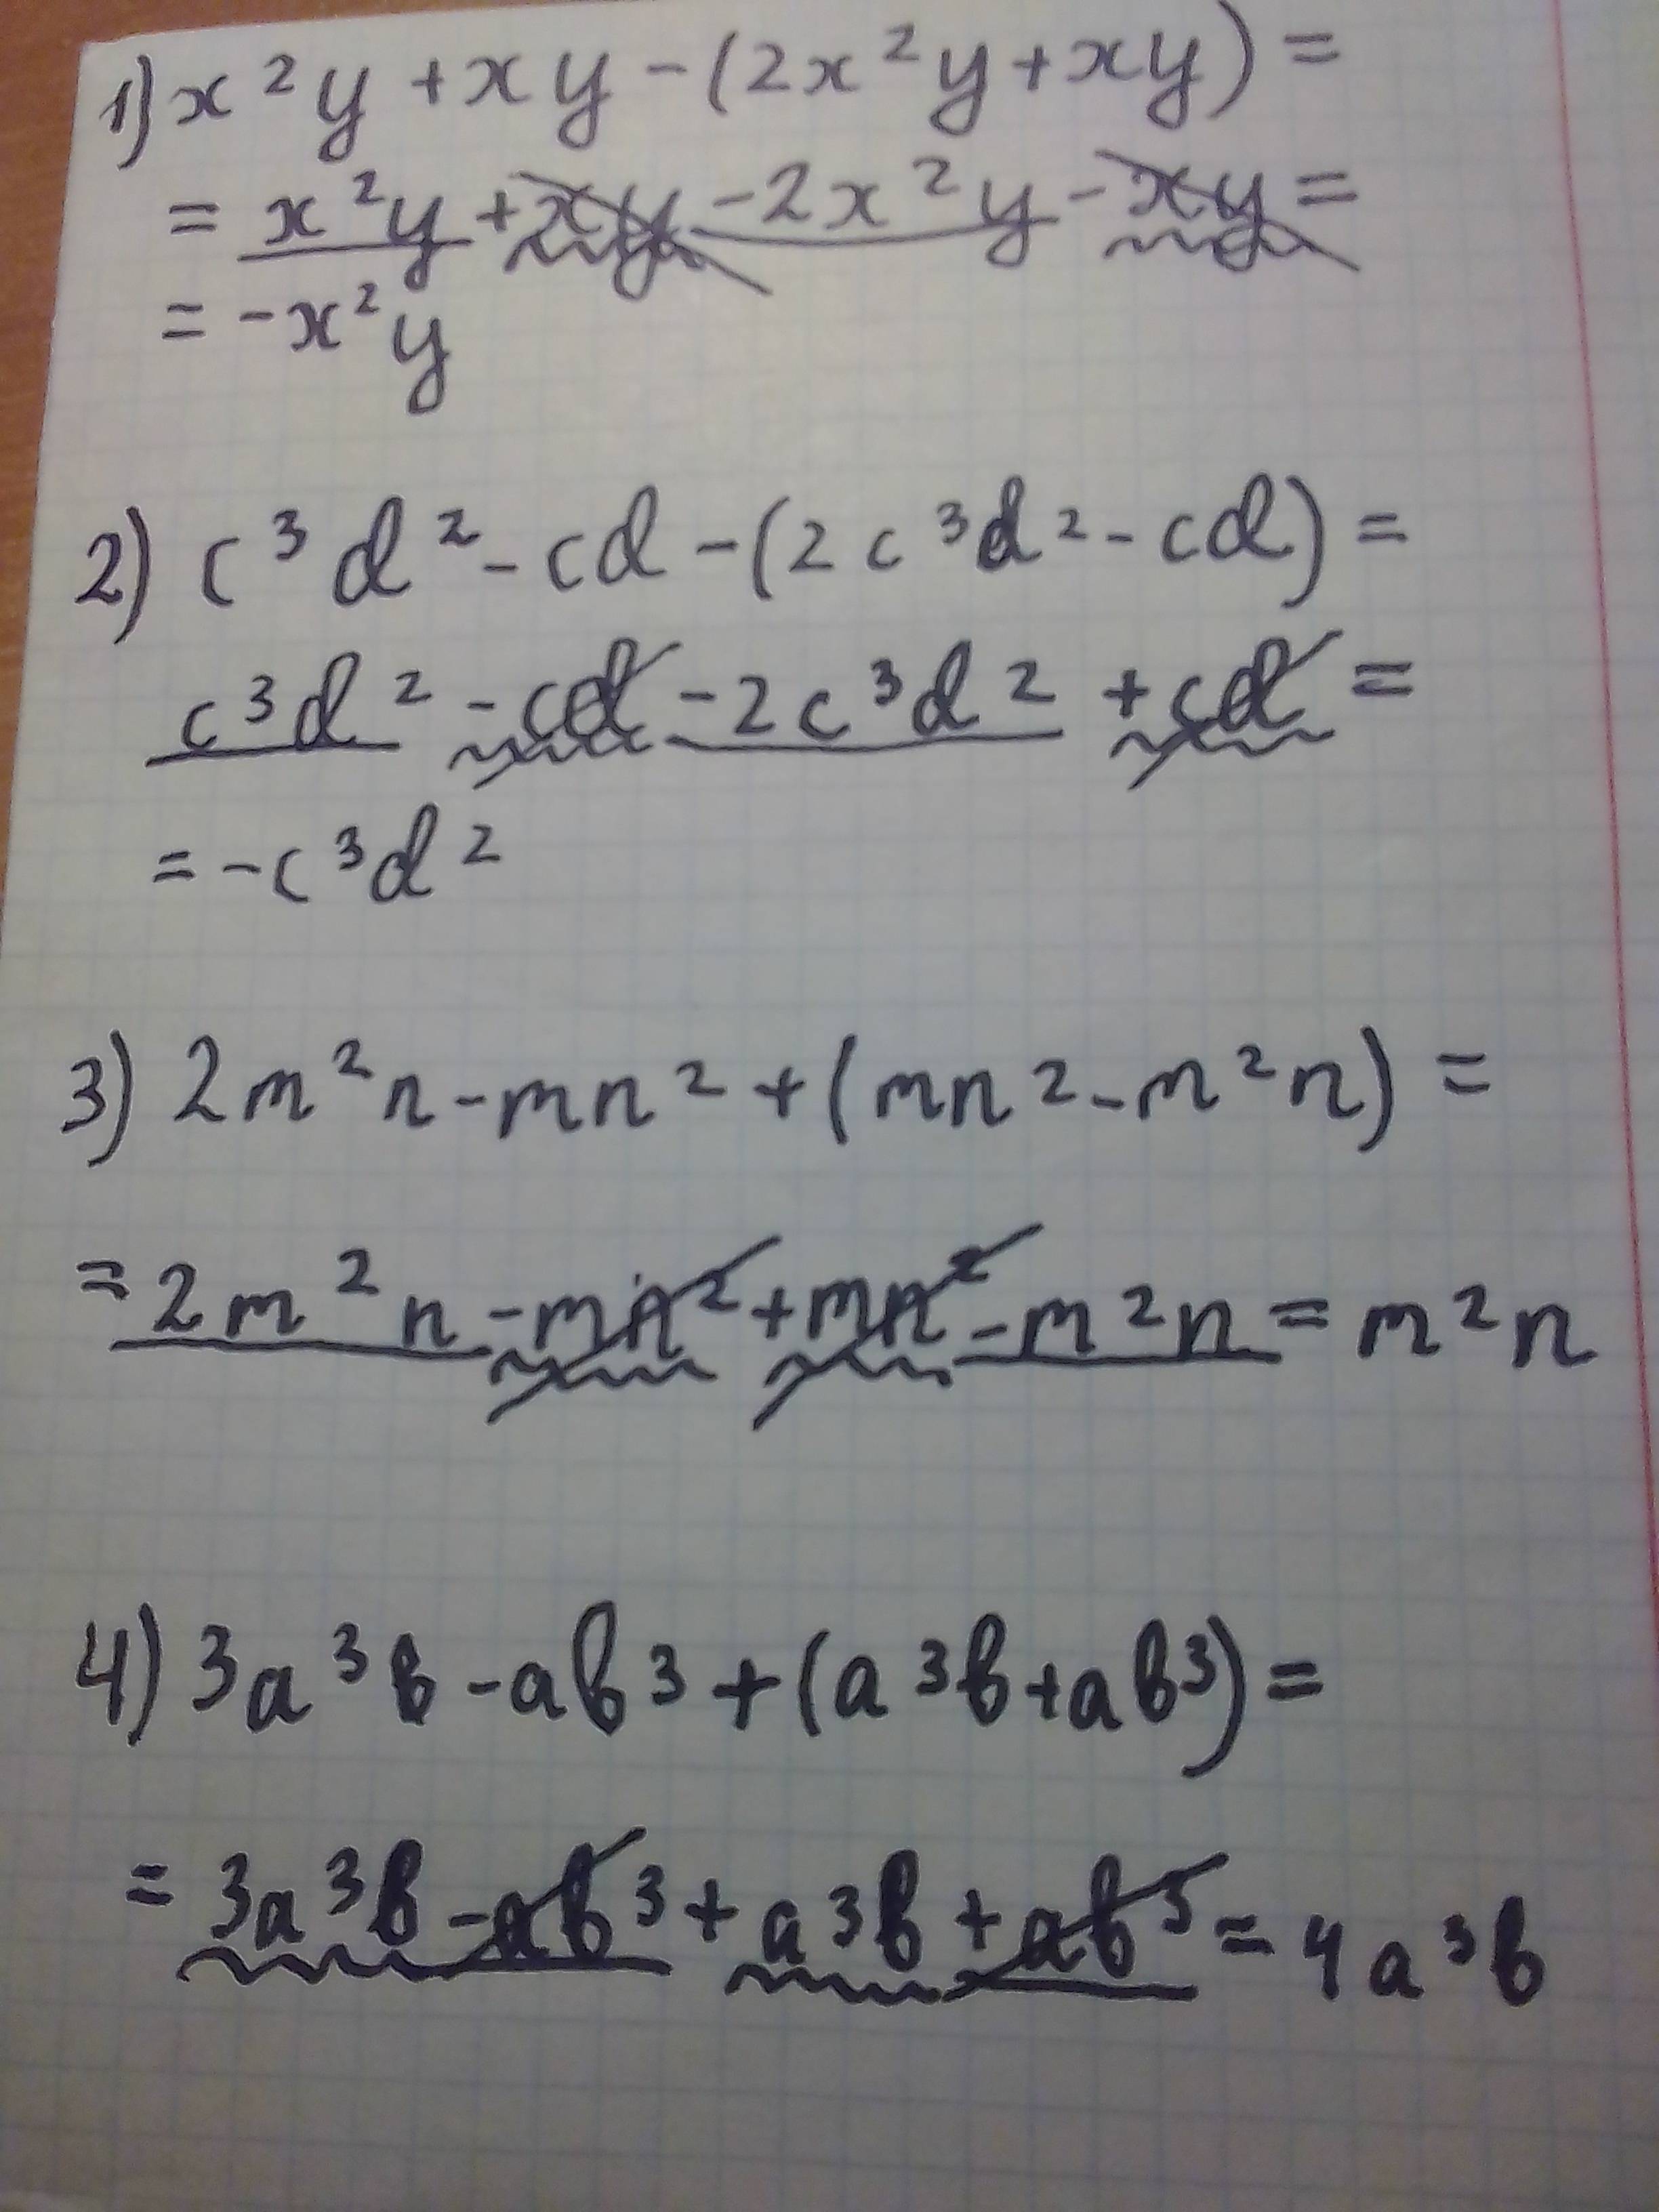 1) x²y + xy - (2x²y + xy) =
= x²y + xy - 2x²y - xy =
= -x²y
2) c³d² - cd - (2c³d² - cd) =
c³d² - cd - 2c³d² + cd =
= -c³d²
3) 2m²n - mn² + (mn² - m²n) =
= 2m²n - mn² + mn² - m²n = m²n
4) 3a³b - ab³ + (a³b + ab³) =
= 3a³b - ab³ + a³b + ab³ = 4a³b